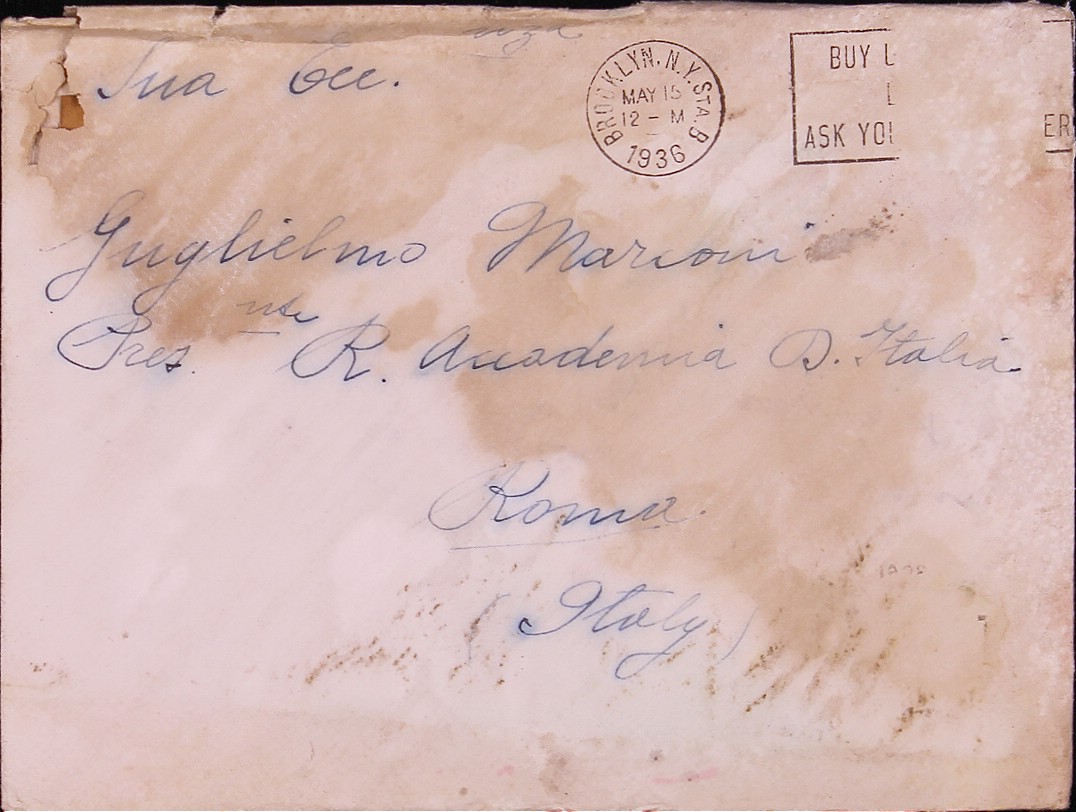 Sua Ecc.
BROOKLYN, N.Y. STA. B
MAY 15
12 - M
1936
BUY U
L
ASK YOU
ER
Guglielmo Marconi
Pres. nte R. Accademia D. Italia
Roma
(Italy)